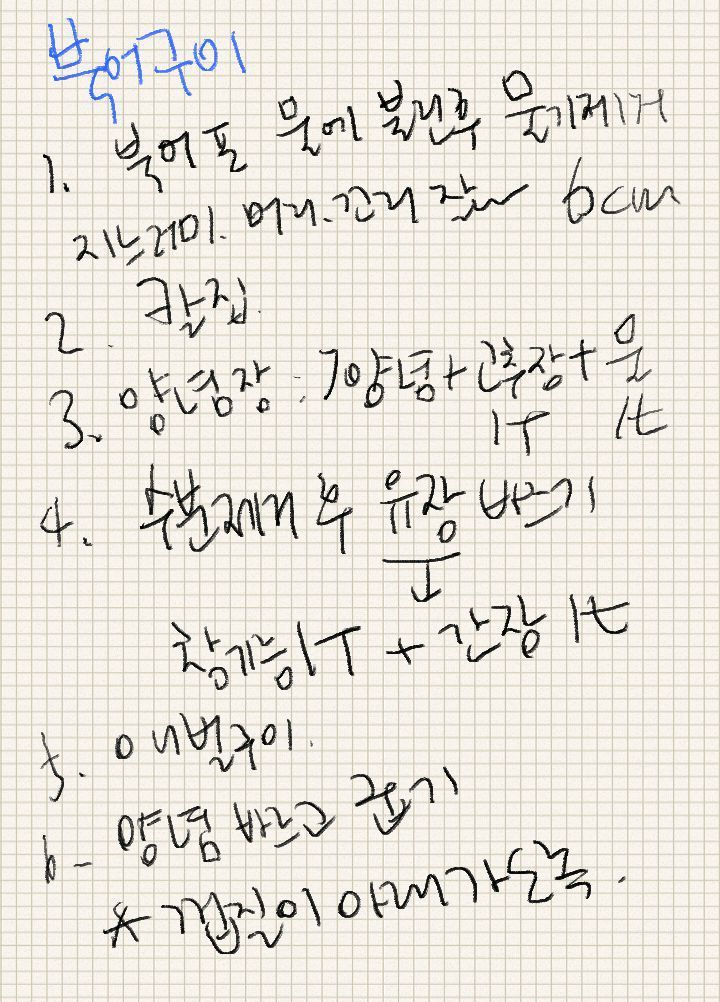 북어구이
1. 북어포 물에 불린후 물기제거
지느러미. 머리. 꼬리 잘라 6cm
2. 칼집.
3. 양념장 : 7양념 + 고추장 + 물
1T 1t
4. 수분제거 후 유장 바르기
↓
참기름 1T + 간장 1t
5. 애벌구이.
6- 양념 바르고 굽기
* 껍질이 아래가도록.